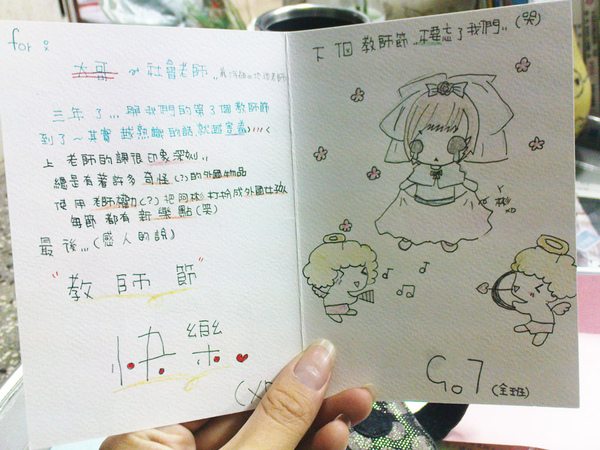 for :
大哥 ~ 社會老師..
三年了... 與我們的第3個教師節
到了~ 其實 越熟識的話就越害羞
上 老師的課很印象深刻..
總是有著許多奇怪(?)的外國物品
使用老師權力(?)把阿妙打扮成外國女孩
每節都有新樂點(哭)
最後...(感人的說)
"教師節"
快樂
下個教師節..不要忘了我們..(哭)
Go7(全班)